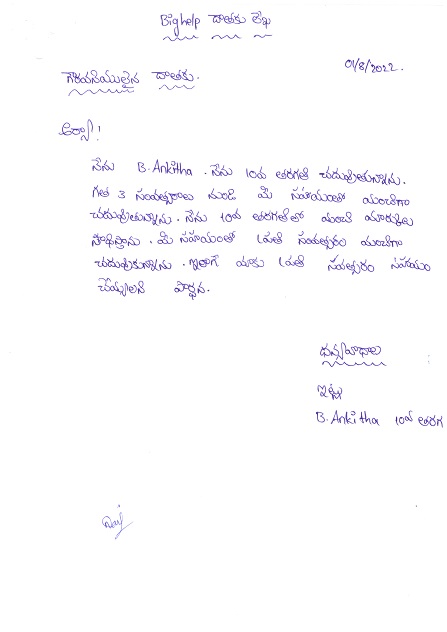 Bighelp దాతకు లేఖ
01/8/2022.
గౌరవనీయులైన దాతకు.
ఆర్యా!
నేను B. Ankitha. నేను 10వ తరగతి చదువుతున్నాను.
గత 3 సంవత్సరాలు నుండి మీ సహయంతో మంచిగా
చదువుతున్నాను. నేను 10వ తరగతిలో మంచి మార్కులు
సాధిస్తాను. మీ సహయంతో ప్రతి సంవత్సరం మంచిగా
చదువుకున్నాను. ఇలాగే మాకు ప్రతి సవత్సరం సహయం
చేయ్యాలని పార్థన.
ధన్యవాదాలు
ఇట్లు
B. Ankitha 10వ తరగ